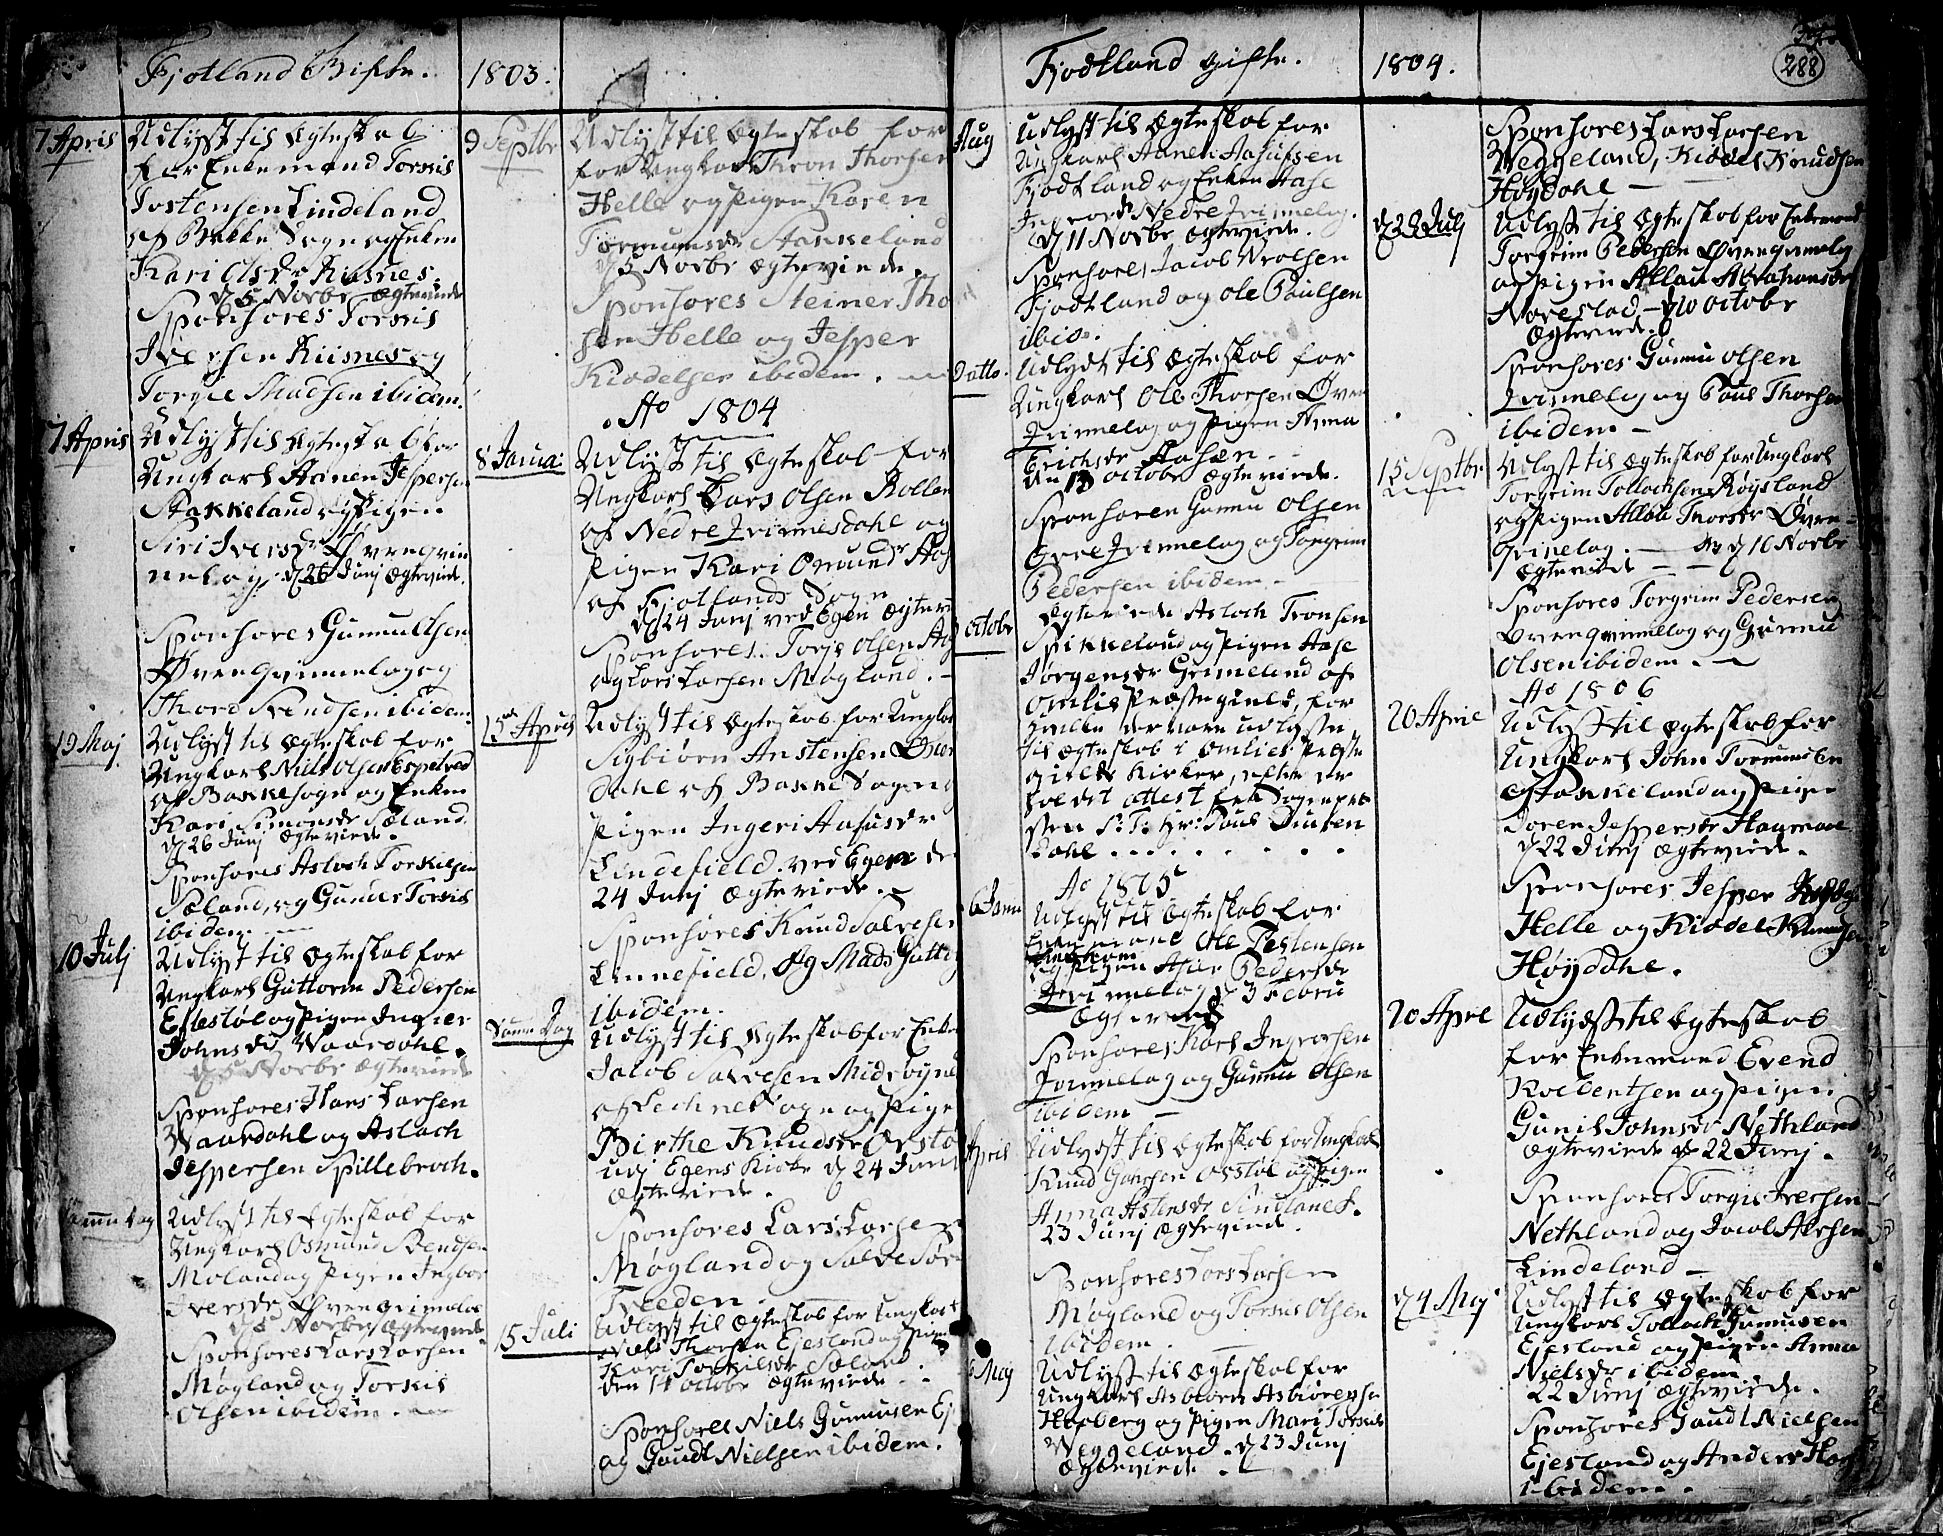 Fjotland Gifte.
1803.
7 April
Udlyst til Egteskab
for Enkemand Torkis
Tostensen Lindeland
af Bakke Sogn og Enken
Kari Olsdr Risnes.
d 5 Novbr Egteviede
Sponsores Torkis
Iversen Risnes og
Torgie Madsen ibidem.
7 April
Udlyst til Egteskab for
Ungkarl Aanen Jespersen
Stakkeland og Pigen
Siri Iversdr Øvre Qvin
nelog. d 26 Junj Egteviede.
Sponsores Gunnu Olsen
Øvre Qvinnelog og
Thord Svendsen ibidem.
19 Maj
Udlyst til Egteskab for
Ungkarl Niels Olsen Espetved
af Bakke sogn og Enken
Kari Simonsdr Sæland.
d 26 Junj Egteviede.
Sponsores Asloch Torkilsen
Sæland, og Gunder Torkis
ibidem
10 Julj
Udlyst til Egteskab for
Ungkarl Guttorm Pedersen
Eftestøl og Pigen Inger
Johnsdr Waardahl.
d 5 Novbr Egteviede
Sponsores Hans Larsen
Waardahl og Aslach
Jespersen Spillebroch.
Samme Dag
Udlyst til Egteskab for
Ungkarl Osmund Svendsen
Moland og Pigen Ingbor
Iversdr Øvre Qvinnelog
d 5 Novbr Egteviede
Sponsores Lars Larsen
Møgland og Torkis
Olsen ibidem.
9 Septbr
Udlyst til Egteskab for
for Ungkarl Tron Thorsen
Helle og Pigen Karen
Tormunsdr Stakkeland
d 5 Novbr Egteviede.
Sponsores Steiner Tho
sen Helle og Jesper
Kiddelsen ibidem.
Ao 1804
8 Janua:
Udlyst til Egteskab for
Ungkarl Lars Olsen Rollen
af Nedre Qvinesdahl og
Pigen Kari Omundr
af Fjotlands Sogn
d 24 Junj ved Egen Egtev
Sponsores. Torjs Olsen
og Lars Larsen Møgland.
15 April
Udlyst til Egteskab for Ungkar
Sigbiørn Anstensen
dahl af Bakke Sogn og
Pigen Ingeri Aasulsdr
Lindefield. ved Egen d
24 Junj Egteviede.
Sponsores Knud Salvesen
Linnefield, Og Mads Gutto
ibidem.
Samme Dag
Udlyst til Egteskab for Enke
Jacob Salvesen Midtbøe
af Sogn og Pigen
Birthe Knudsdr
udj Egens Kirke d 24 Junj
Egteviede.
Sponsores Lars Larsen
Møgland og Salve Sør
Tveeden.
15 Juli
Udlyst til Egteskab for Ungkarl
Niels Thorsen Ejesland og Pigen
Kari Torkilsdr Sæland.
den 14 octobr Egteviede.
Sponsores Niels Gunnusen Ej
og Gaudt Nielsen ibidem.
Fjodtland Gifte.
1804.
288
Aug
Udlyst til Egteskab for
Ungkarl Aanen Aasulsen
Fjodtland og Enken Aase
Ingvordr Nedre Qvinnelog.
d 11 Novbr Egteviede.
Sponsores Jacob Wrolsen
Fjodtland og Ole Paulsen
ibid.
Datto.
Udlyst til Egteskab for
Ungkarl Ole Thorsen Øvre
Qvinnelog og Pigen Anna
Erichsdr Aasen.
octobr Egteviede.
Sponsorer Gunnu Olsen
Øvre Qvinnelog og Torgrim
Pedersen ibidem
octobr
Egteviede Asloch Tronsen
Spikkeland og Pigen Aase
Jørgensdr Grimelund af
Omlie Præstegield, for
hvilke der vare udlyste
til Egteskab i Omlie Præste
gields Kirker, efter der
for det attest fra Sognepræ
sten S: T: Hr: Poul
dahl
Ao 1805
6 Janu
Udlyst til Egteskab for
Enkemand Ole Testensen
og Pigen Asier Pedersdr
Qvinnelog d 3 Febru
Egteviede
Sponsores Karl Ingvorsen
Qvinnelog og Gunnu Olsen
ibidem
April
Udlyst til Egteskab for Ungkarl
Knud Osstøl og Pigen
Anna Astensdr
23 Junj Egteviede.
Sponsores Lars Larsen
Møgland og Torkis Olsen
ibidem.
Maj
Udlyst til Egteskab for
Ungkarl Asbiørn Asbiørensen
Hegberg og Pigen Mari Torkils
Weggeland. d 23 Junj
Egteviede.
Sponsores Lars Larsen
Weggeland, Kiddel Knudsen
Høydahl
d 28 Julj
Udlyst til Egteskab for Enkemand
Torgrim Pedersen Øvre Qvinnelog
og Pigen Allau Abrahamsdr
Narestad - d 10 octobr
Egteviede.
Sponsores Gunnu Olsen
Qvinnelog og Poul Thorsen
ibidem
15 Septbr
Udlyst til Egteskab for Ungkarl
Torgrim Tollachsen Røysland
og Pigen Allau Thorsdr Øvre
Qvinelog. - d 10 Novbr
Egteviede
Sponsores Torgrim Pedersen
Øvre Qvinnelog og Gunnu
Olsen ibidem.
Ao 1806
20 April
Udlyst til Egteskab for
Ungkarl John Tormunsen
Stakkeland og Pigen
Soren Jespersdr Haugmoe
d 22 Junj Egteviede.
Sponsores Jesper
Helle og Kiddel Knudsen
Høydahl.
20 Apri
Udlyst til Egteskab
for Enkemand Evend
Roebentsen og Pigen
Gunild Johnsdr Nethland
Egteviede d 22 Junj.
Sponsores Torgis Iversen
Nethland og Jacob Aersen
Lindeland
d 4 Maj
Udlyst til Egteskab for
Ungkarl Tollach Gunnusen
Ejesland og Pigen Anna
Nielsdr ibidem
22 Junj Egteviede.
Sponsores Gaudt Nielsen
Ejesland og Anders
ibidem.